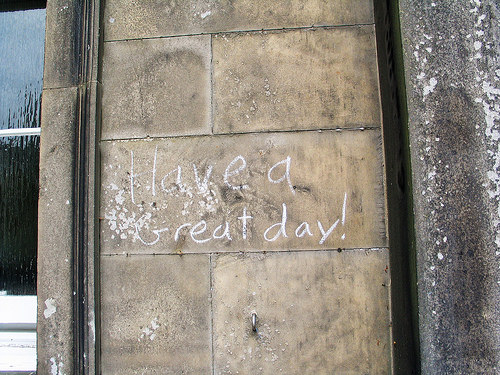 Have a
Great day!